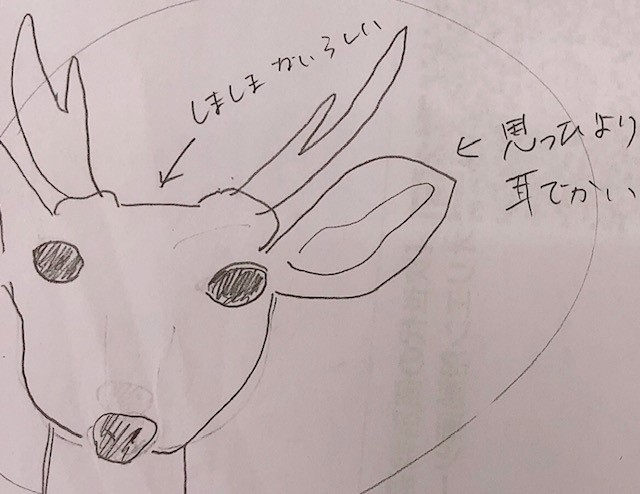 しましま かいらしい
思ったより
耳でかい